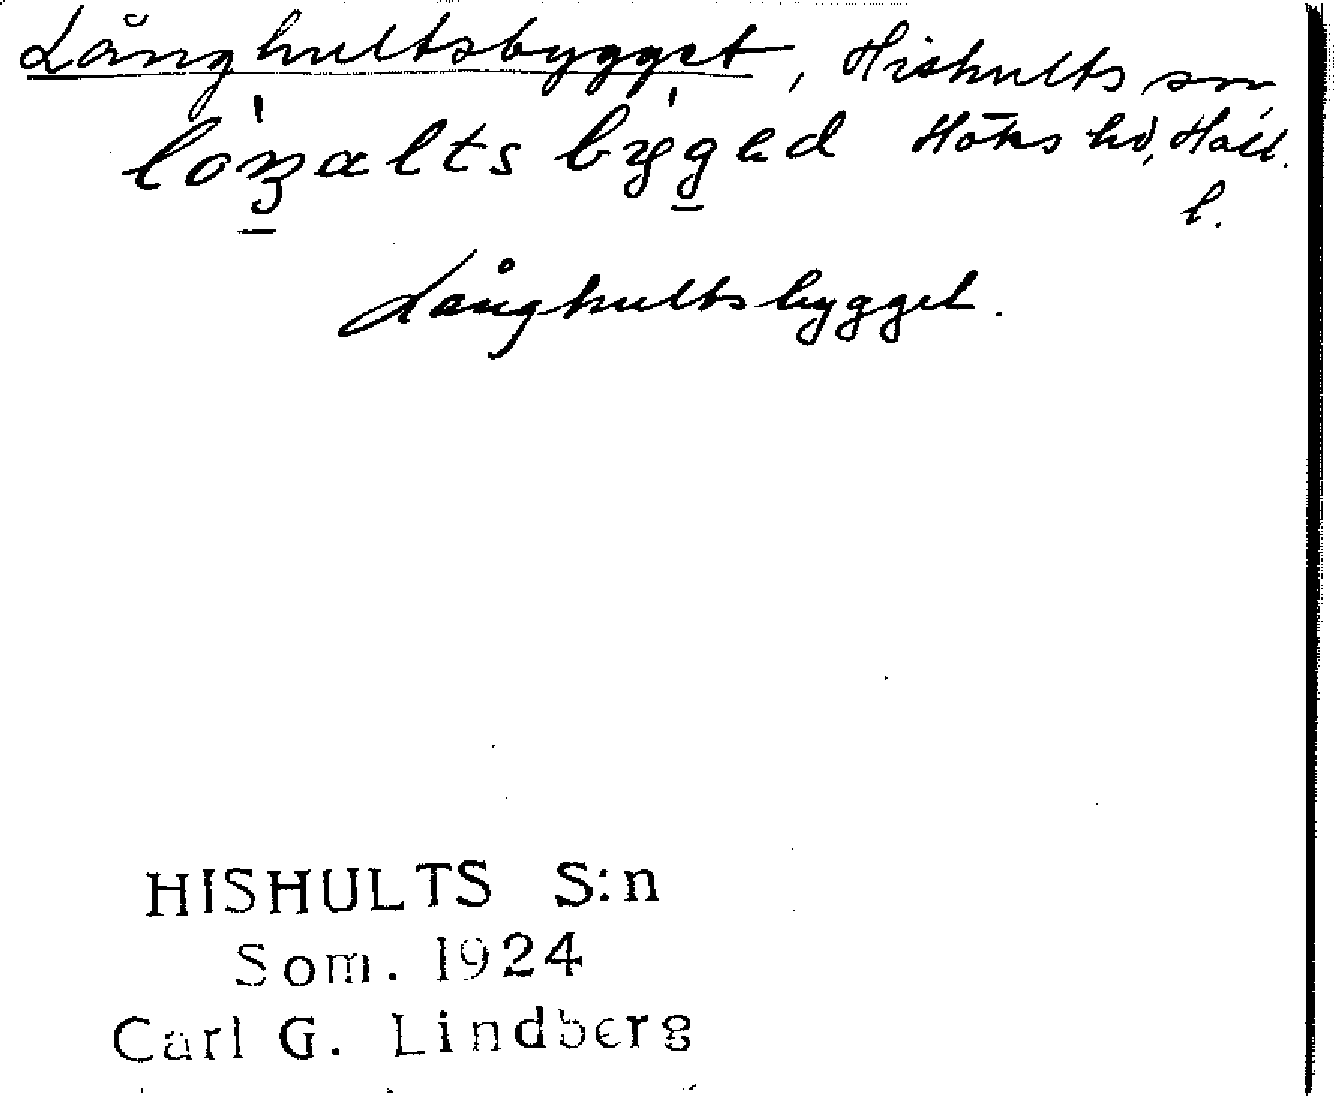 Långhultsbygget, Hishults sn,
lȯŋalts bẏgad Höks hd, Hall.
l.
Långhultsbygget.
HISHULTS S:n
Som. 1924
Carl G. Lindberg